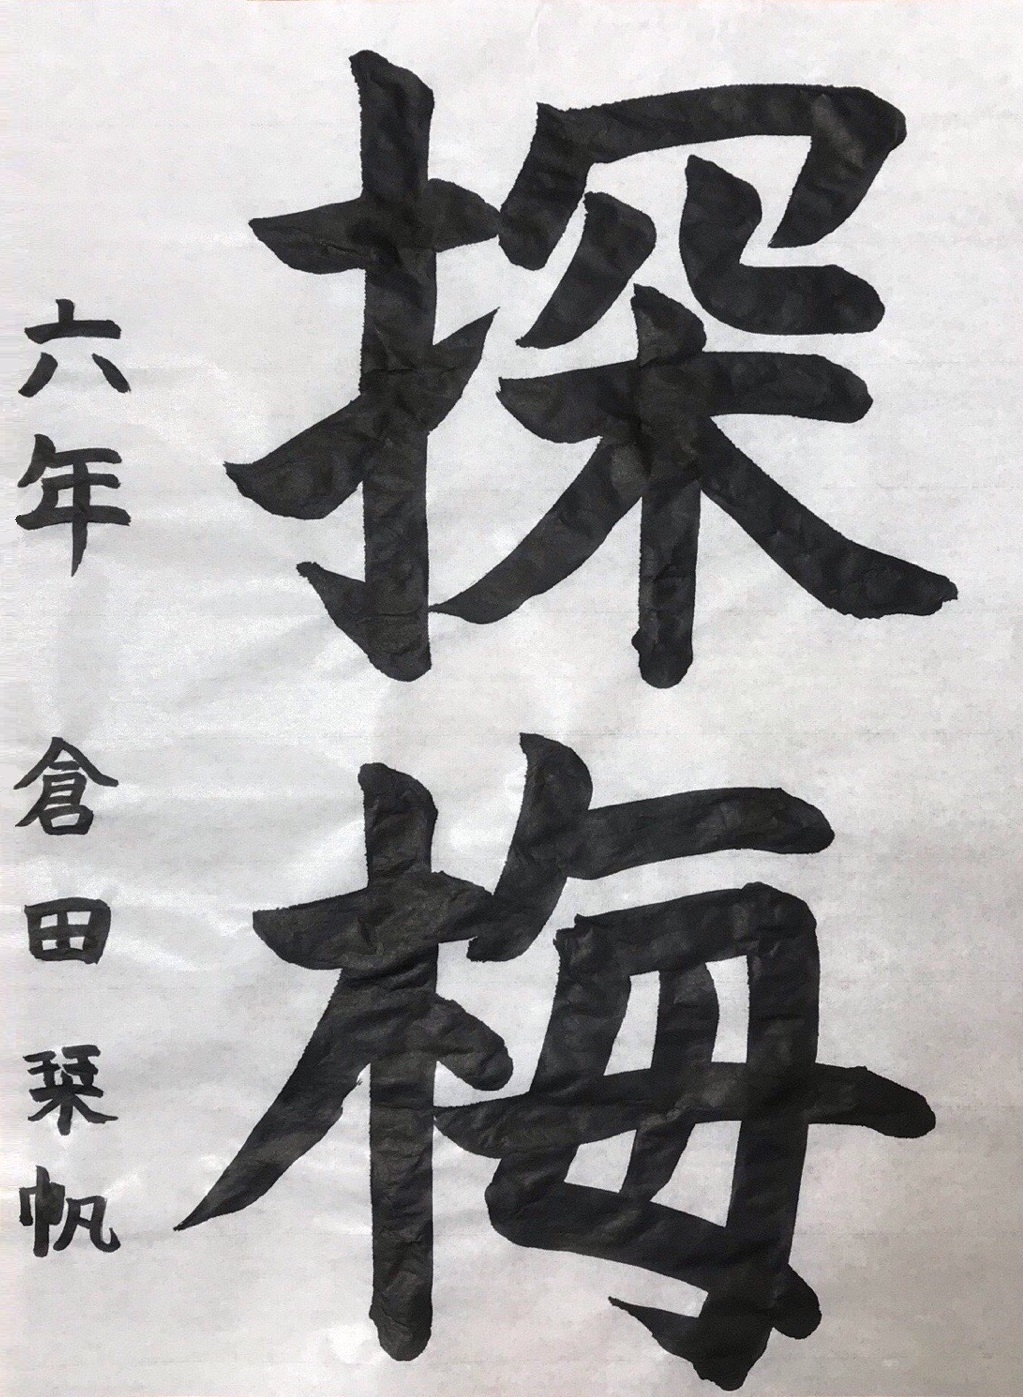 探梅
六年 倉田栞帆